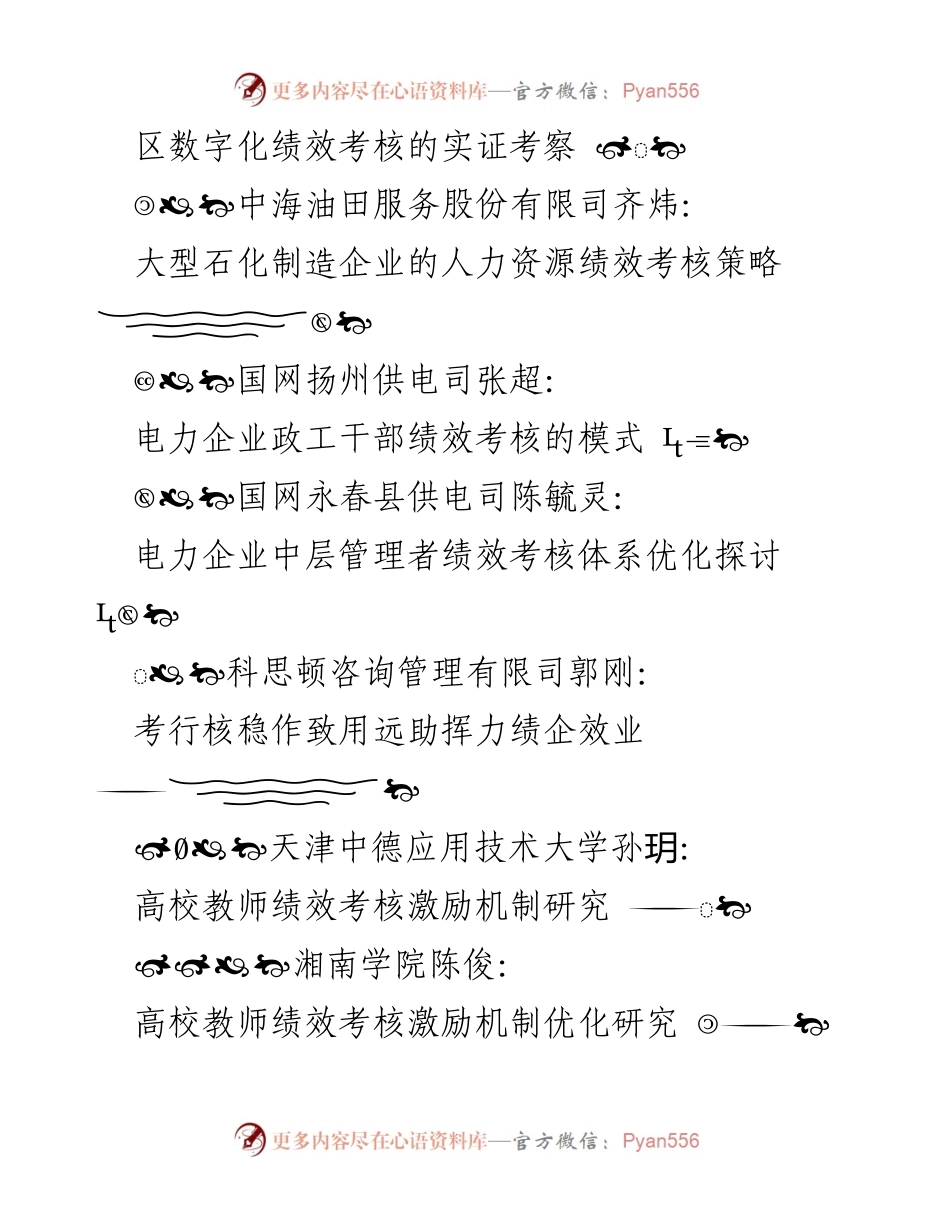 更多内容尽在心语资料库—官方微信：Pyan556
区数字化绩效考核的实证考察
中海油田服务股份有限司齐炜:
大型石化制造企业的人力资源绩效考核策略
国网扬州供电司张超:
电力企业政工干部绩效考核的模式
国网永春县供电司陈毓灵:
电力企业中层管理者绩效考核体系优化探讨
科思顿咨询管理有限司郭刚:
考行核稳作致用远助挥力绩企效业
天津中德应用技术大学孙玥:
高校教师绩效考核激励机制研究
湘南学院陈俊:
高校教师绩效考核激励机制优化研究
更多内容尽在心语资料库—官方微信：Pyan556